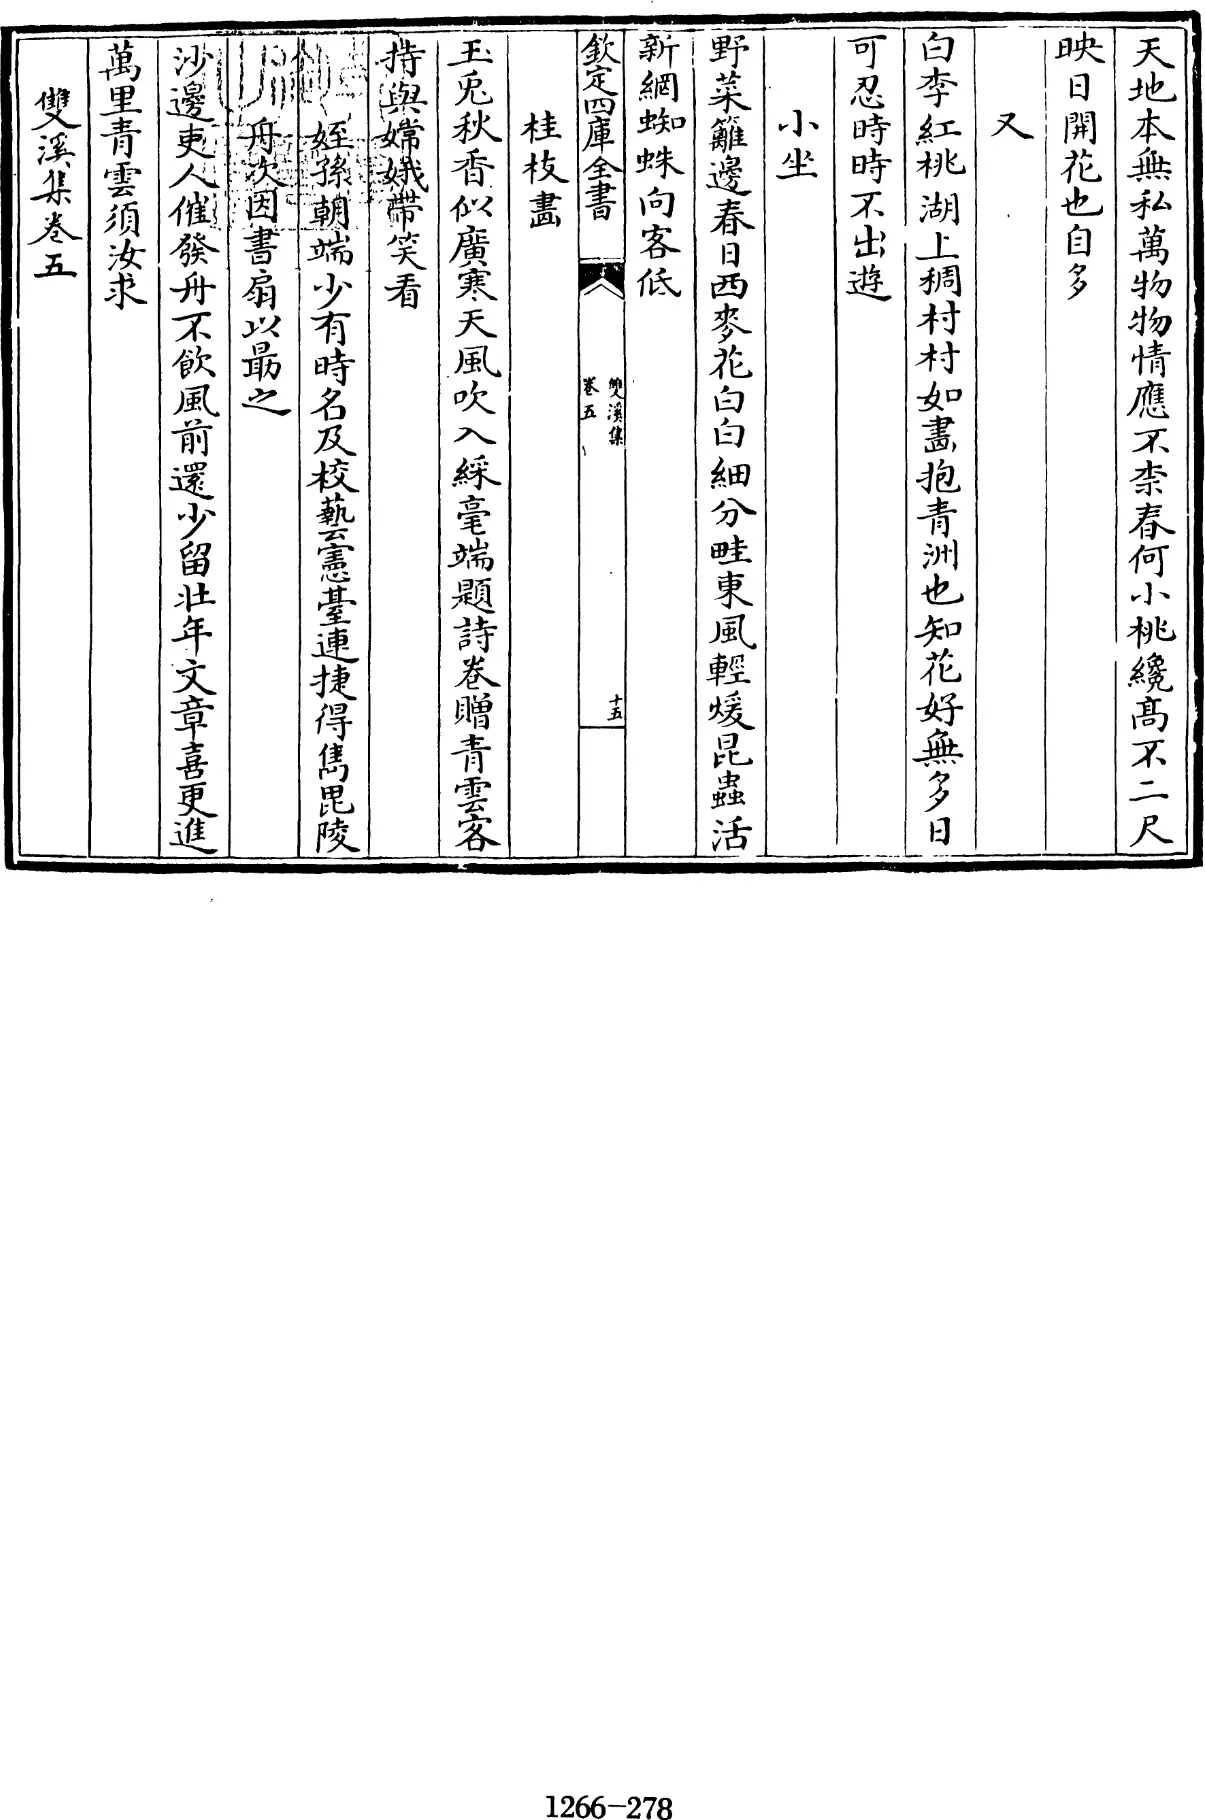 天地本無私萬物物情應不柰春何小桃纔髙不二尺
映日開花也自多
又
白李紅桃湖上稠村村如畫抱青洲也知花好無多日
可忍時時不出遊
小坐
野菜籬邊春日西麥花白白細分畦東風輕煖昆蟲活
新網蜘蛛向客低
欽定四庫全書
雙溪集
卷五
十五
桂枝畫
玉兎秋香似廣寒天風吹入綵毫端題詩卷贈青雲客
持與嫦娥帶笑看
姪孫朝端少有時名及校藝憲臺連捷得雋毘陵
舟次因書扇以勗之
沙邊吏人催發舟不飲風前還少留壯年文章喜更進
萬里青雲須汝求
雙溪集卷五
1266-278